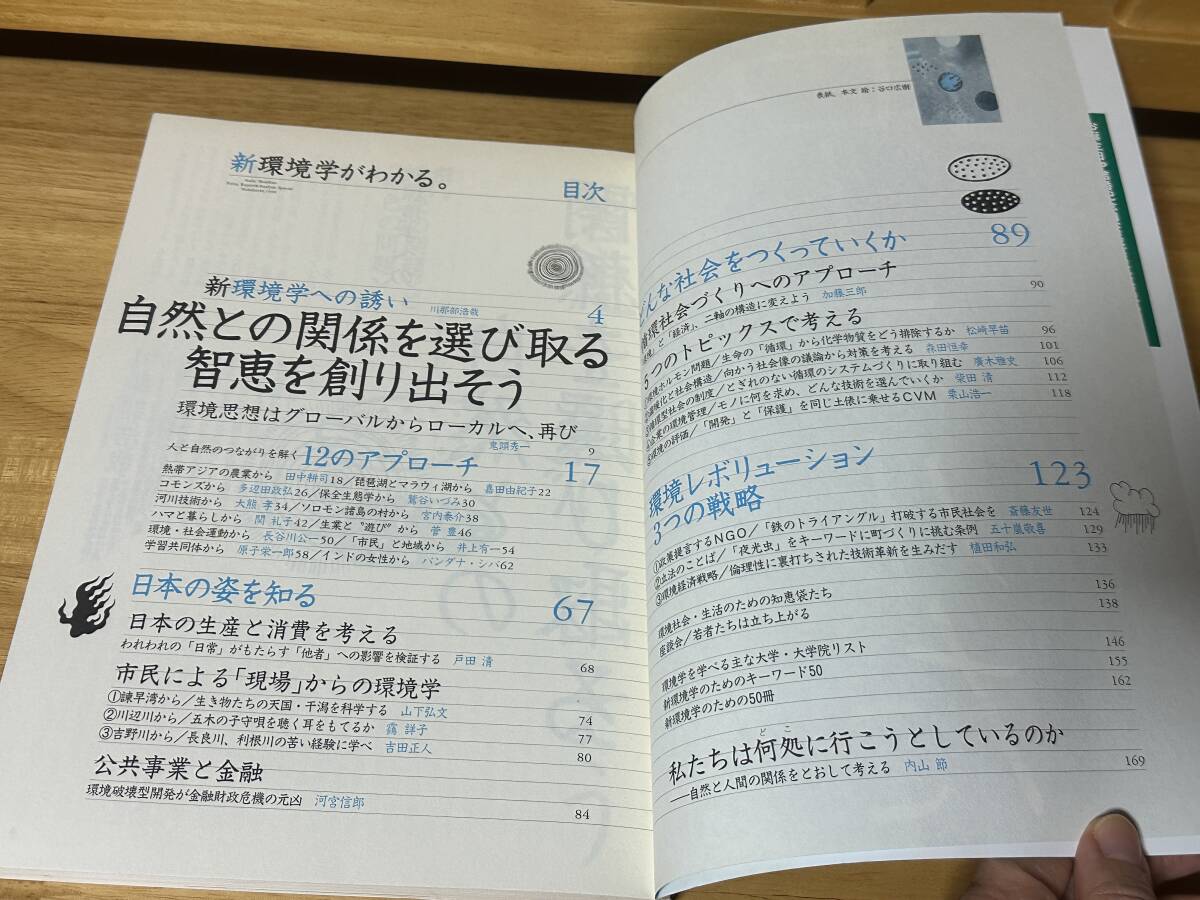 新環境学がわかる。
目次
新環境学への誘い 川那部浩哉 4
自然との関係を選び取る
智恵を創り出そう
環境思想はグローバルからローカルへ、再び
鬼頭秀一 9
人と自然のつながりを解く 12のアプローチ 17
熱帯アジアの農業から 田中耕司18/琵琶湖とマラウィ湖から 嘉田由紀子22
コモンズから 多辺田政弘26/保全生態学から 鷲谷いづみ30
河川技術から 大熊 孝34/ソロモン諸島の村から 宮内泰介38
ハマと暮らしから 関 礼子42/生業と“遊び”から 菅 豊46
環境・社会運動から 長谷川公一50/「市民」と地域から 井上有一54
学習共同体から 原子栄一郎58/インドの女性から バンダナ・シバ62
日本の姿を知る 67
日本の生産と消費を考える
われわれの「日常」がもたらす「他者」への影響を検証する 戸田 清 68
市民による「現場」からの環境学
①諫早湾から/生き物たちの天国・干潟を科学する 山下弘文 74
②川辺川から/五木の子守唄を聴く耳をもてるか 靏 詳子 77
③吉野川から/長良川、利根川の苦い経験に学べ 吉田正人 80
公共事業と金融
環境破壊型開発が金融財政危機の元凶 河宮信郎 84
表紙、本文 絵:谷口広樹
どんな社会をつくっていくか 89
循環社会づくりへのアプローチ
と「経済」、二軸の構造に変えよう 加藤三郎 90
5つのトピックスで考える
ホルモン問題/生命の「循環」から化学物質をどう排除するか 松崎早苗 96
化と社会構造/向かう社会像の議論から対策を考える 森田恒幸 101
型社会の制度/とぎれのない循環のシステムづくりに取り組む 廣木雅史 106
企業の環境管理/モノに何を求め、どんな技術を選んでいくか 柴田 清 112
環境の評価/「開発」と「保護」を同じ土俵に乗せるCVM 栗山浩一 118
環境レボリューション 123
3つの戦略
①政策提言するNGO/「鉄のトライアングル」打破する市民社会を 斎藤友世 124
②立法のことば/「夜光虫」をキーワードに町づくりに挑む条例 五十嵐敬喜 129
③環境経済戦略/倫理性に裏打ちされた技術革新を生みだす 植田和弘 133
環境社会・生活のための知恵袋たち 136
座談会/若者たちは立ち上がる 138
環境学を学べる主な大学・大学院リスト 146
新環境学のためのキーワード50 155
新環境学のための50冊 162
どこ
私たちは何処に行こうとしているのか
――自然と人間の関係をとおして考える 内山 節 169